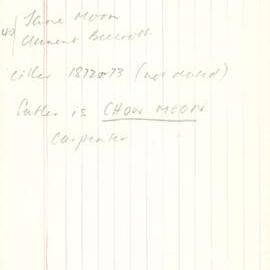 40/ Jane Moon
Clement Beecroft
Either 1872 or 73 (not dated)
Father is CHOW MEOW
Carpenter